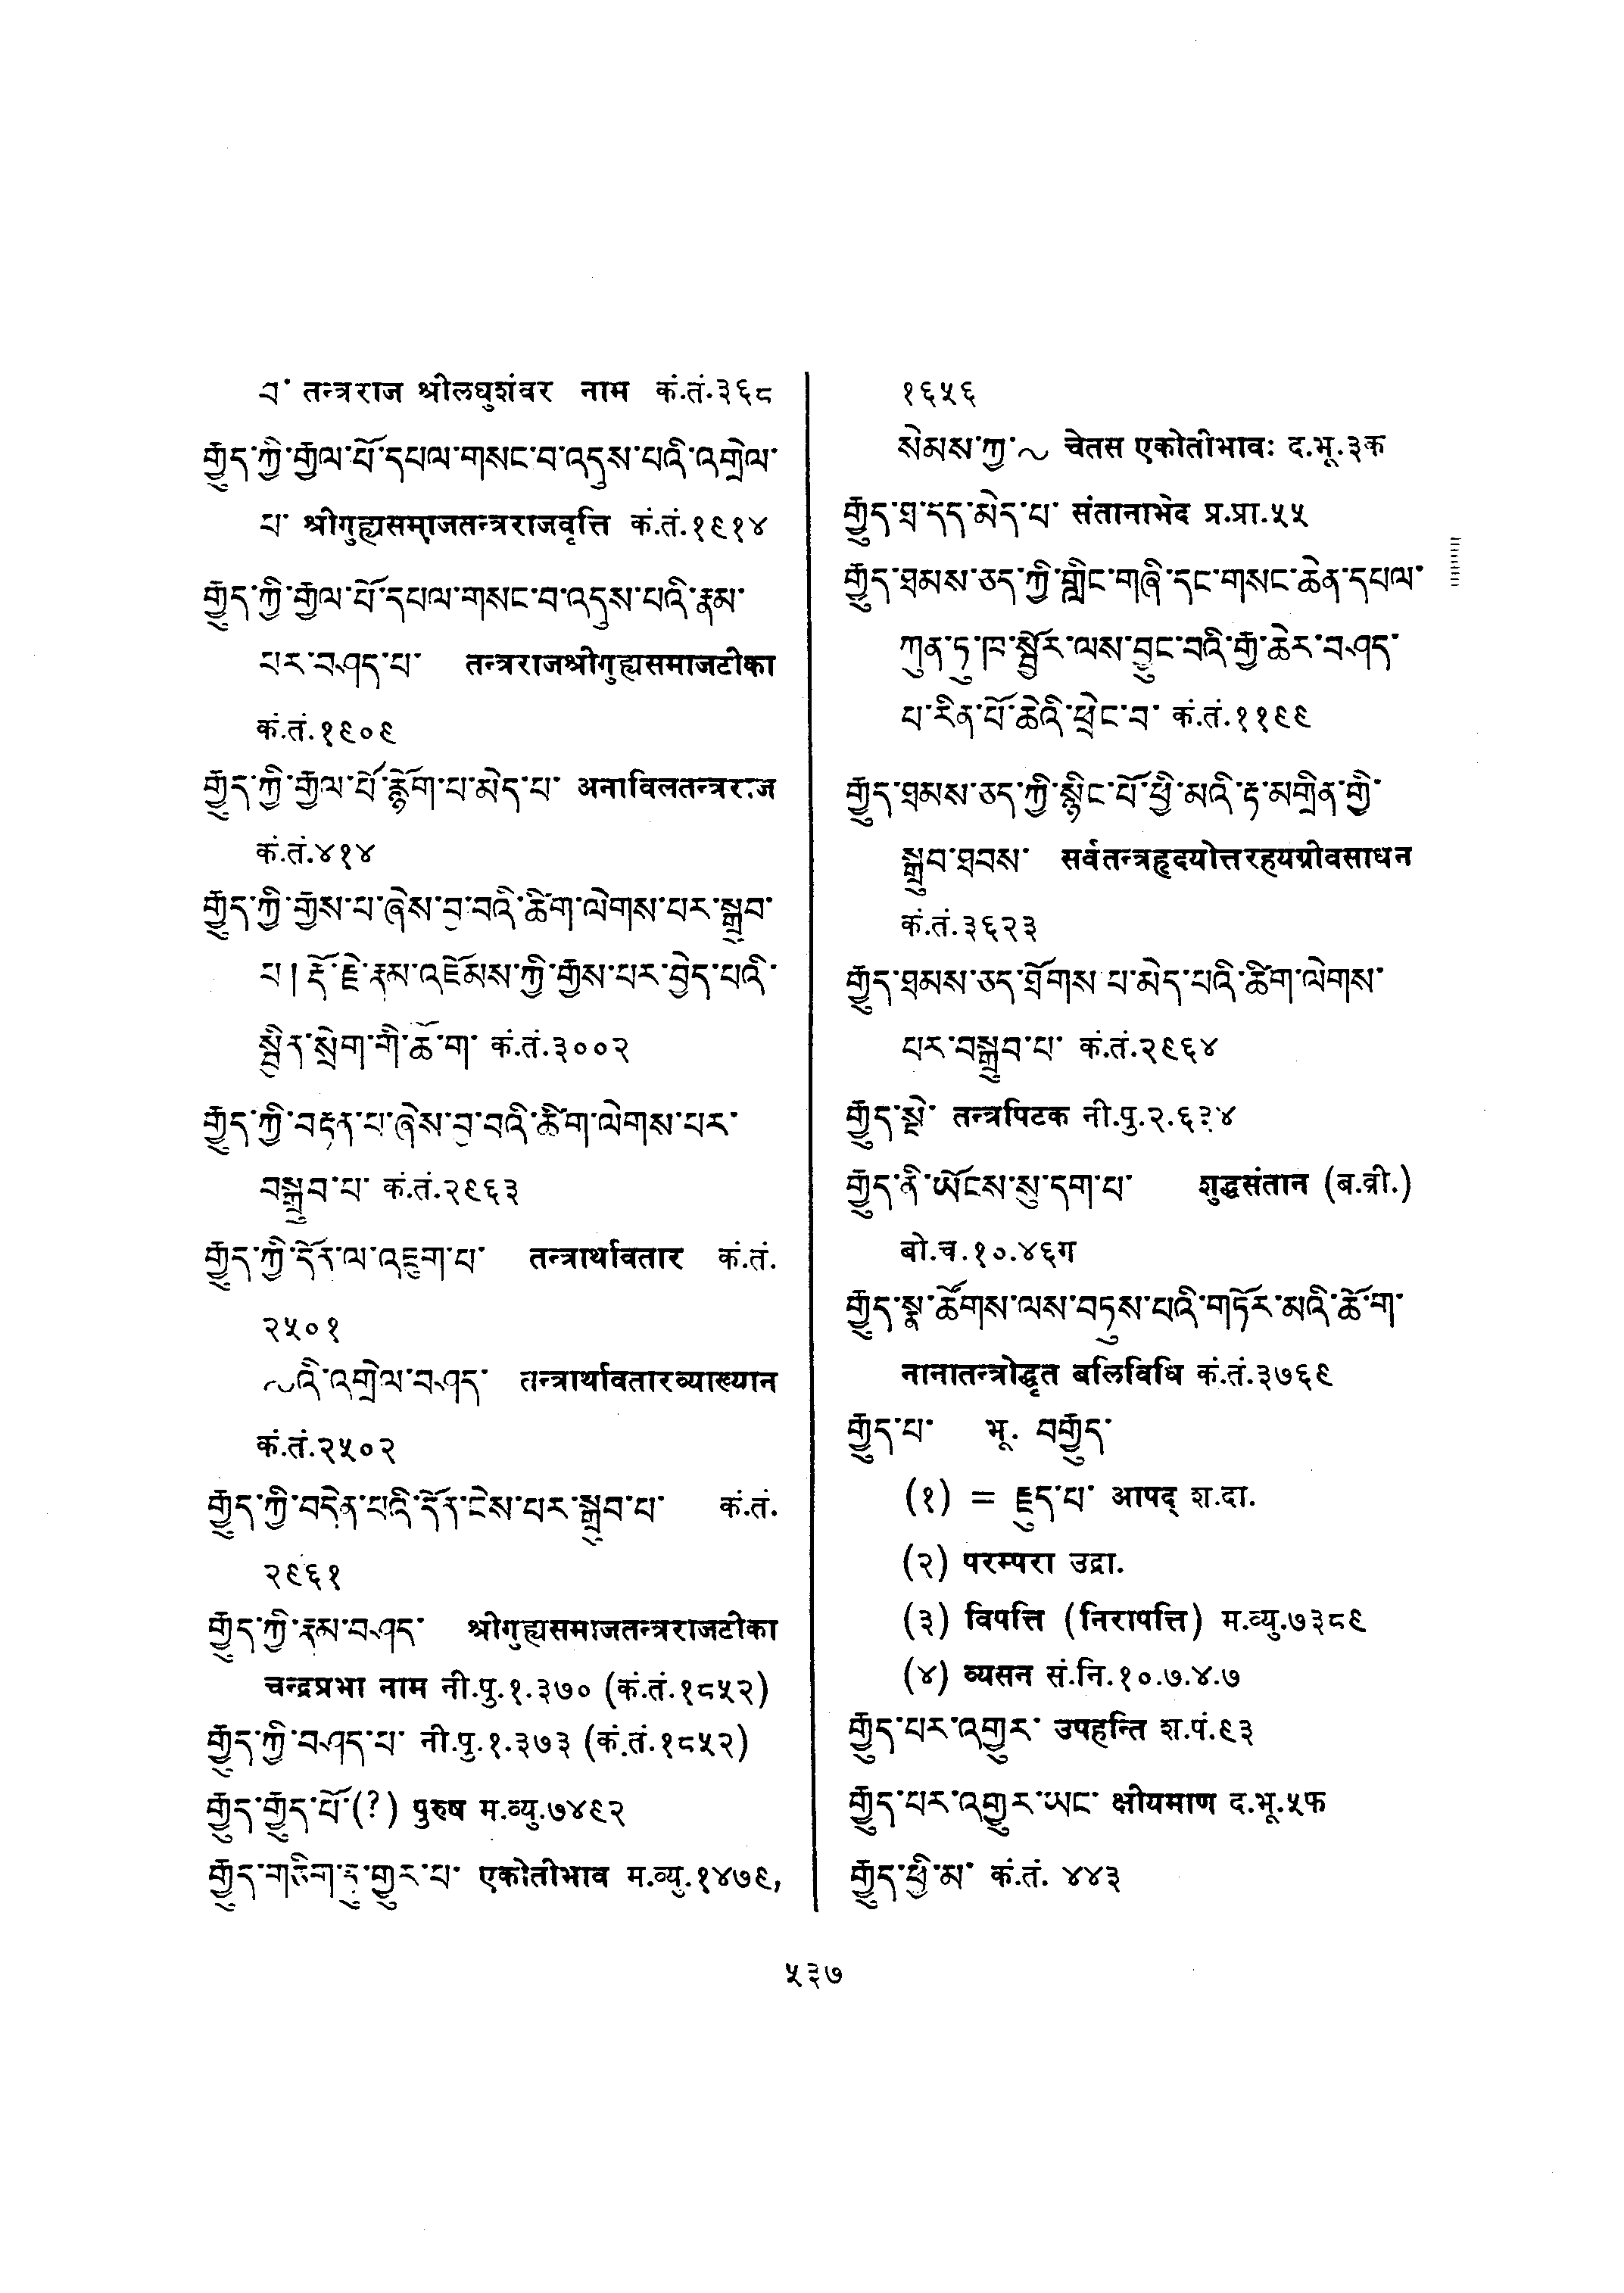 བ་ तन्त्रराज श्रीलघुशंवर नाम कं.तं.३६८
རྒྱུད་ཀྱི་རྒྱལ་པོ་དཔལ་གསང་བ་འདུས་པའི་འགྲེལ་
པ་ श्रीगुह्यसमाजतन्त्रराजवृत्ति कं.तं.१९१४
རྒྱུད་ཀྱི་རྒྱལ་པོ་དཔལ་གསང་བ་འདུས་པའི་རྣམ་
པར་བཤད་པ་ तन्त्रराजश्रीगुह्यसमाजटीका
कं.तं.१९०९
རྒྱུད་ཀྱི་རྒྱལ་པོ་རྙོག་པ་མེད་པ་ अनाविलतन्त्रराज
कं.तं.४१४
རྒྱུད་ཀྱི་རྒྱས་པ་ཞེས་བྱ་བའི་ཚིག་ལེགས་པར་སྒྲུབ་
པ། རྡོ་རྗེ་རྣམ་འཇོམས་ཀྱི་རྒྱས་པར་བྱེད་པའི་
སྦྱིན་སྲེག་གི་ཆོ་ག་ कं.तं.३००२
རྒྱུད་ཀྱི་བརྟན་པ་ཞེས་བྱ་བའི་ཚིག་ལེགས་པར་
བསྒྲུབ་པ་ कं.तं.२९६३
རྒྱུད་ཀྱི་དོན་ལ་འཇུག་པ་ तन्त्रार्थावतार कं.तं.
२५०१
~འི་འགྲེལ་བཤད་ तन्त्रार्थावतारव्याख्यान
कं.तं.२५०२
རྒྱུད་ཀྱི་བདེན་པའི་དོན་ངེས་པར་སྒྲུབ་པ་ कं.तं.
२९६१
རྒྱུད་ཀྱི་རྣམ་བཤད་ श्रीगुह्यसमाजतन्त्रराजटीका
चन्द्रप्रभा नाम नी.पु.१.३७० (कं.तं.१८५२)
རྒྱུད་ཀྱི་བཤད་པ་ नी.पु.१.३७३ (कं.तं.१८५२)
རྒྱུད་རྒྱུད་པོ་(?) पुरुष म.व्यु.७४९२
རྒྱུད་གཅིག་ཏུ་གྱུར་པ་ एकोतीभाव म.व्यु.१४७९,
१६५६
སེམས་ཀྱ་~ चेतस एकोतीभावः द.भू.३क
རྒྱུད་ཐ་དད་མེད་པ་ संतानाभेद प्र.प्रा.५५
རྒྱུད་ཐམས་ཅད་ཀྱི་གླེང་གཞི་དང་གསང་ཆེན་དཔལ་
ཀུན་ཏུ་ཁ་སྦྱོར་ལས་བྱུང་བའི་རྒྱ་ཆེར་བཤད་
པ་རིན་པོ་ཆེའི་ཕྲེང་བ་ कं.तं.११९९
རྒྱུད་ཐམས་ཅད་ཀྱི་སྙིང་པོ་ཕྱི་མའི་རྟ་མགྲིན་གྱི་
སྒྲུབ་ཐབས་ सर्वतन्त्रहृदयोत्तरहयग्रीवसाधन
कं.तं.३६२३
རྒྱུད་ཐམས་ཅད་ཐོགས་པ་མེད་པའི་ཚིག་ལེགས་
པར་བསྒྲུབ་པ་ कं.तं.२९६४
རྒྱུད་སྡེ་ तन्त्रपिटक नी.पु.२.६३४
རྒྱུད་ནི་ཡོངས་སུ་དག་པ་ शुद्धसंतान (ब.व्री.)
बो.च.१०.४६ग
རྒྱུད་སྣ་ཚོགས་ལས་བཏུས་པའི་གཏོར་མའི་ཆོ་ག་
नानातन्त्रोद्धृत बलिविधि कं.तं.३७६९
རྒྱུད་པ་ भू. བརྒྱུད་
(१) = རྗུད་པ་ आपद् श.दा.
(२) परम्परा उद्रा.
(३) विपत्ति (निरापत्ति) म.व्यु.७३८९
(४) व्यसन सं.नि.१०.७.४.७
རྒྱུད་པར་འགྱུར་ उपहन्ति श.पं.९३
རྒྱུད་པར་འགྱུར་ཡང་ क्षीयमाण द.भू.५फ
རྒྱུད་ཕྱི་མ་ कं.तं. ४४३
५३७